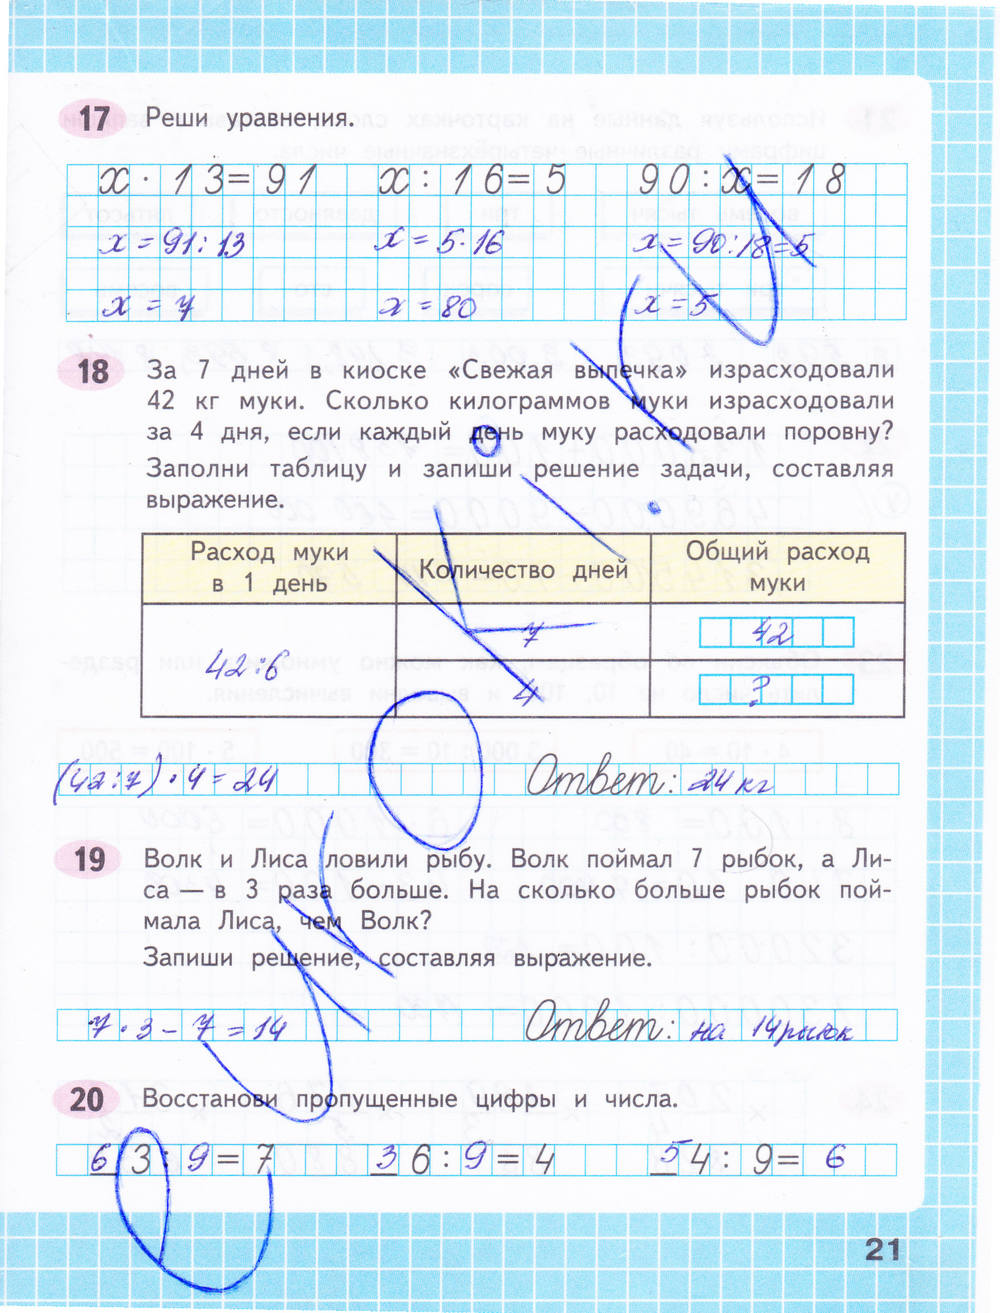 17 Реши уравнения.
x · 13 = 91 x : 16 = 5 90 : x = 18
x = 91 : 13 x = 5 · 16 x = 90 : 18 = 5
x = 7 x = 80 x = 5
18 За 7 дней в киоске «Свежая выпечка» израсходовали
42 кг муки. Сколько килограммов муки израсходовали
за 4 дня, если каждый день муку расходовали поровну?
Заполни таблицу и запиши решение задачи, составляя
выражение.
Расход муки в 1 день Количество дней Общий расход муки
42:6 7 42
4 ?
(42:7) · 4 = 24 Ответ: 24 кг
19 Волк и Лиса ловили рыбу. Волк поймал 7 рыбок, а Ли-
са — в 3 раза больше. На сколько больше рыбок пой-
мала Лиса, чем Волк?
Запиши решение, составляя выражение.
7 · 3 - 7 = 14 Ответ: на 14
20 Восстанови пропущенные цифры и числа.
63 : 9 = 7 36 : 9 = 4 54 : 9 = 6
21